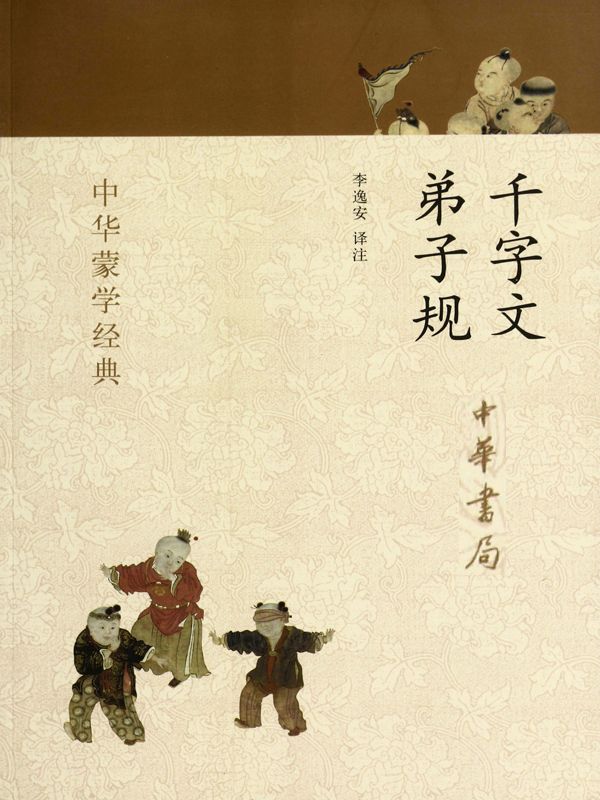 千字文
弟子规
李逸安 译注
中华蒙学经典
中華書局